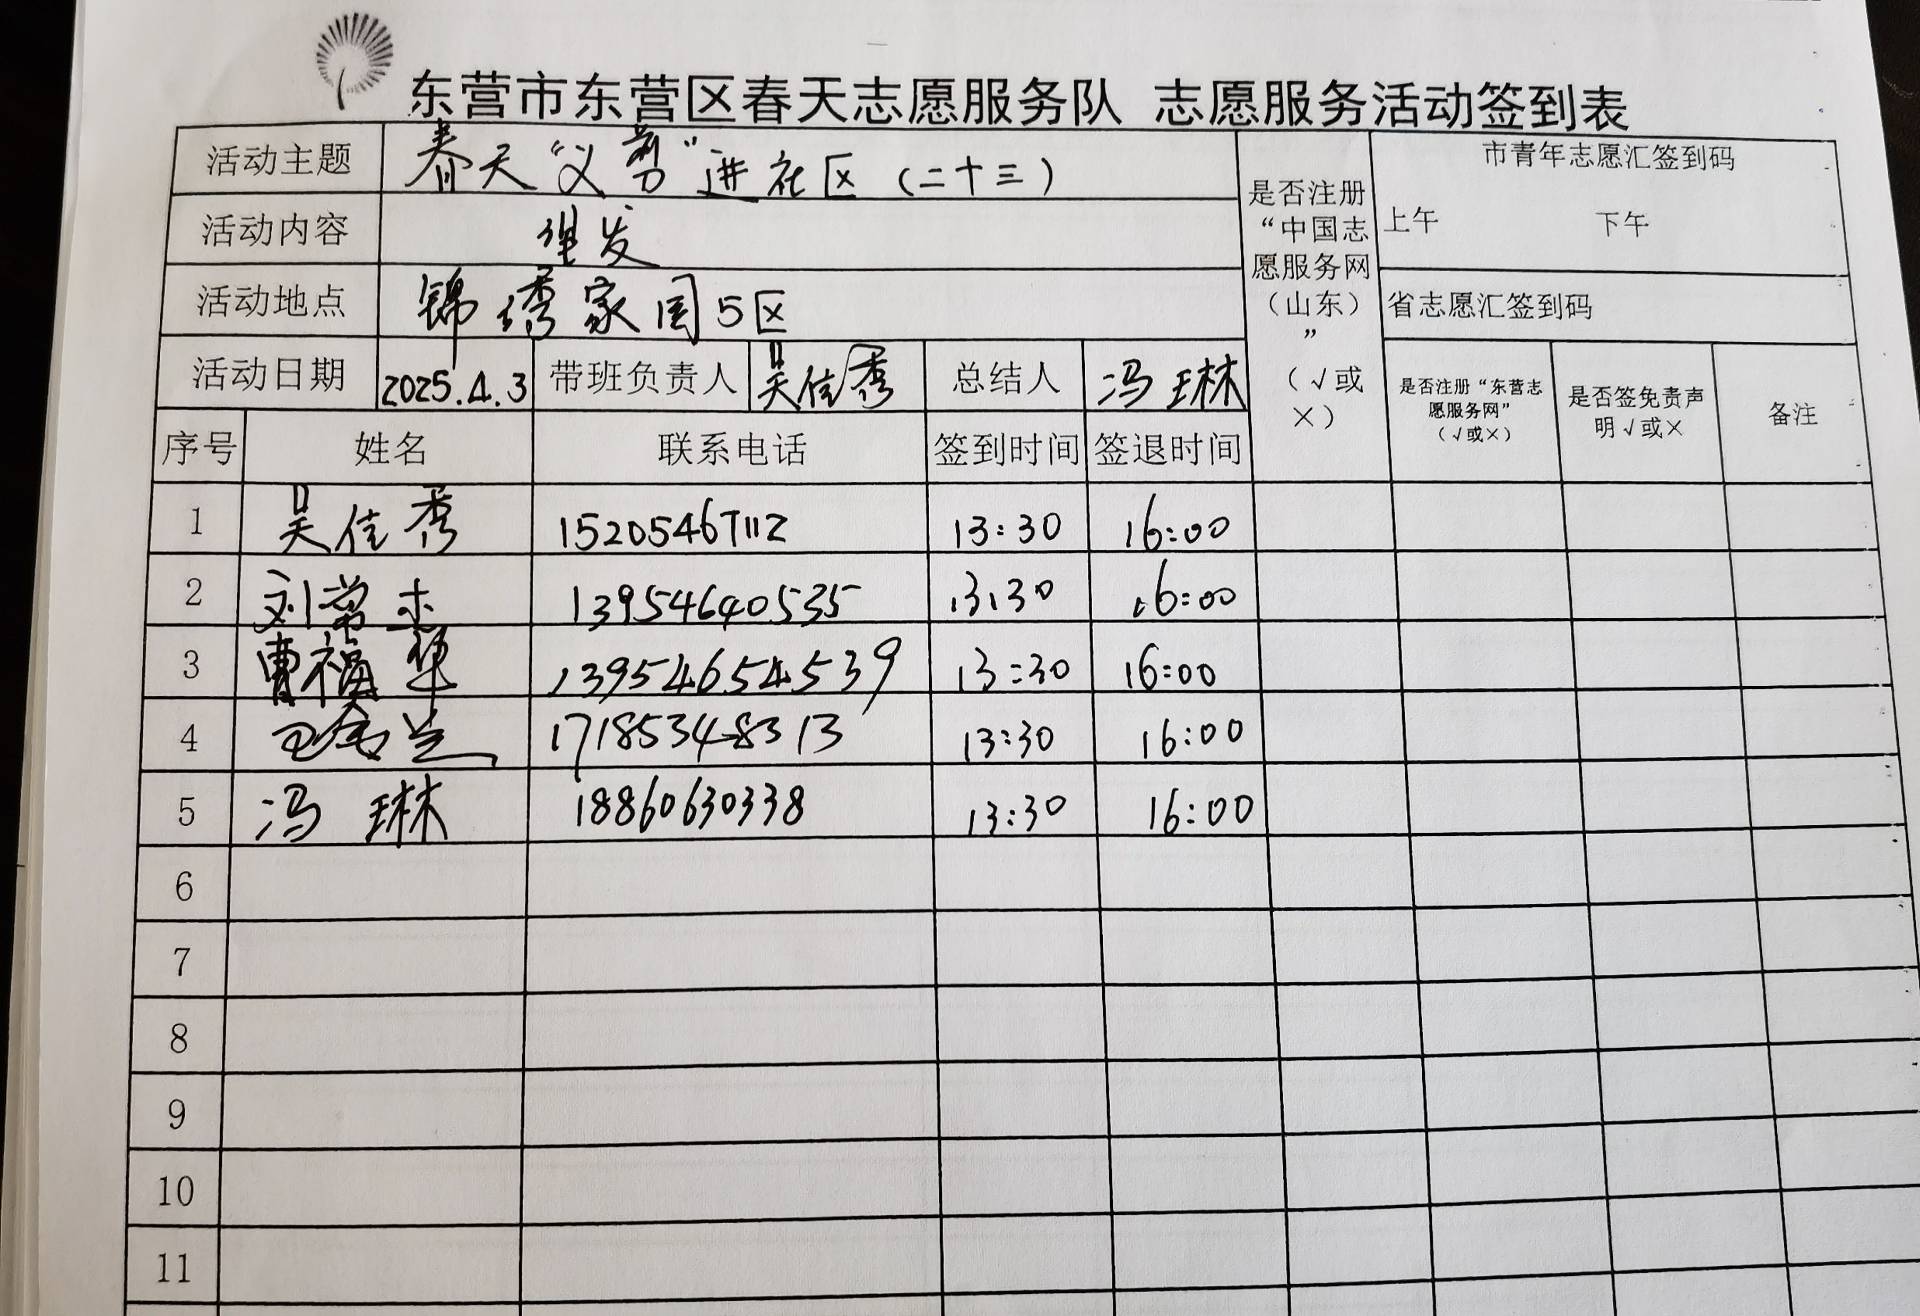 东营市东营区春天志愿服务队 志愿服务活动签到表
活动主题 春天“义剪”进社区(二十三)
活动内容 理发
活动地点 锦绣家园5区
活动日期 2025.4.3 带班负责人 吴佳秀 总结人 冯琳
是否注册
“中国志
愿服务网
(山东)
”
(√或
×)
市青年志愿汇签到码
上午 下午
省志愿汇签到码
是否注册“东营志
愿服务网”
(√或×)
是否签免责声
明√或×
备注
序号 姓名 联系电话 签到时间 签退时间
1 吴佳秀 15205467112 13:30 16:00
2 刘常杰 13954640535 13:30 16:00
3 曹福华 13954654539 13:30 16:00
4 17185348313 13:30 16:00
5 冯琳 18860630338 13:30 16:00
6
7
8
9
10
11